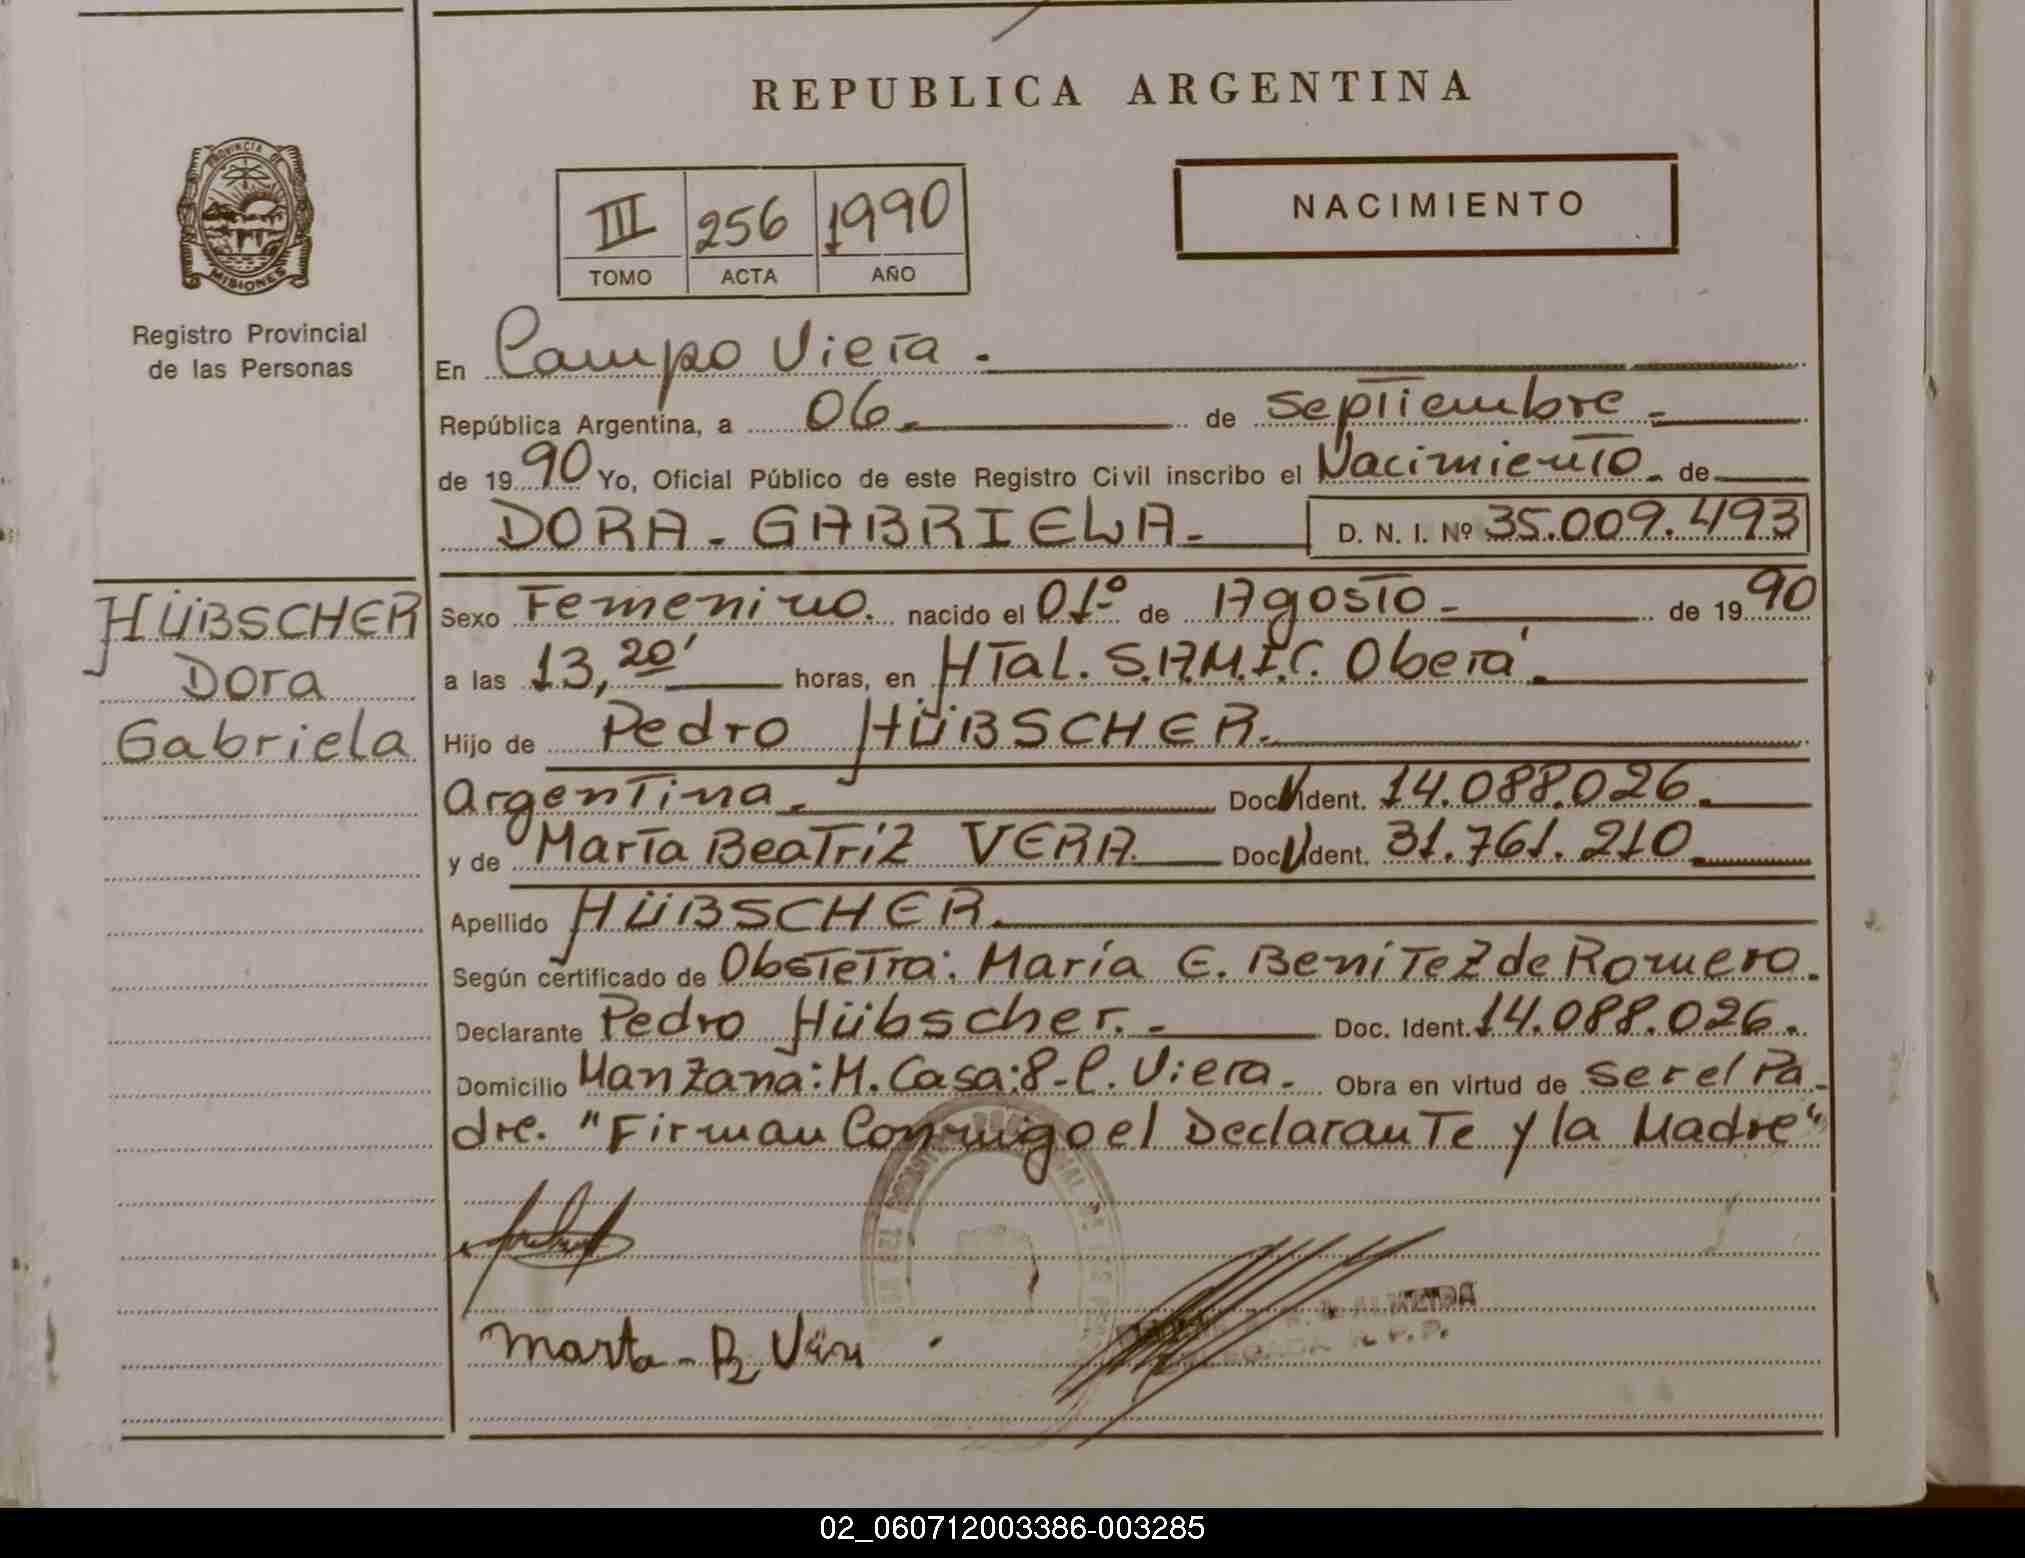 REPUBLICA ARGENTINA
PROVINCIA DE
MISIONES
Registro Provincial
de las Personas
III 256 1990
TOMO ACTA AÑO
NACIMIENTO
En Campo Viera.
República Argentina, a 06. de Septiembre.
de 1990 Yo, Oficial Público de este Registro Civil inscribo el Nacimiento. de
DORA - GABRIELA - D. N. I. Nº 35.009.493
HÜBSCHER
Dora
Gabriela
Sexo Femenino. nacido el 01º de Agosto - de 1990
a las 13,20' horas, en HTal. S.A.M.I.C. Oberá.
Hijo de Pedro HÜBSCHER.
Argentina. Doc. Ident. 14.088.026.
y de Marta Beatriz VERA. Doc. Ident. 31.761.210
Apellido HÜBSCHER.
Según certificado de Obstetra: María E. Benítez de Romero.
Declarante Pedro Hübscher. - Doc. Ident. 14.088.026.
Domicilio Manzana: M. Casa: 8 - C. Viera. Obra en virtud de ser el Pa-
dre. "Firman Conmigo el Declarante y la Madre"
ALMEIDA
R. P. P.
Marta - B. Vera
02_060712003386-003285